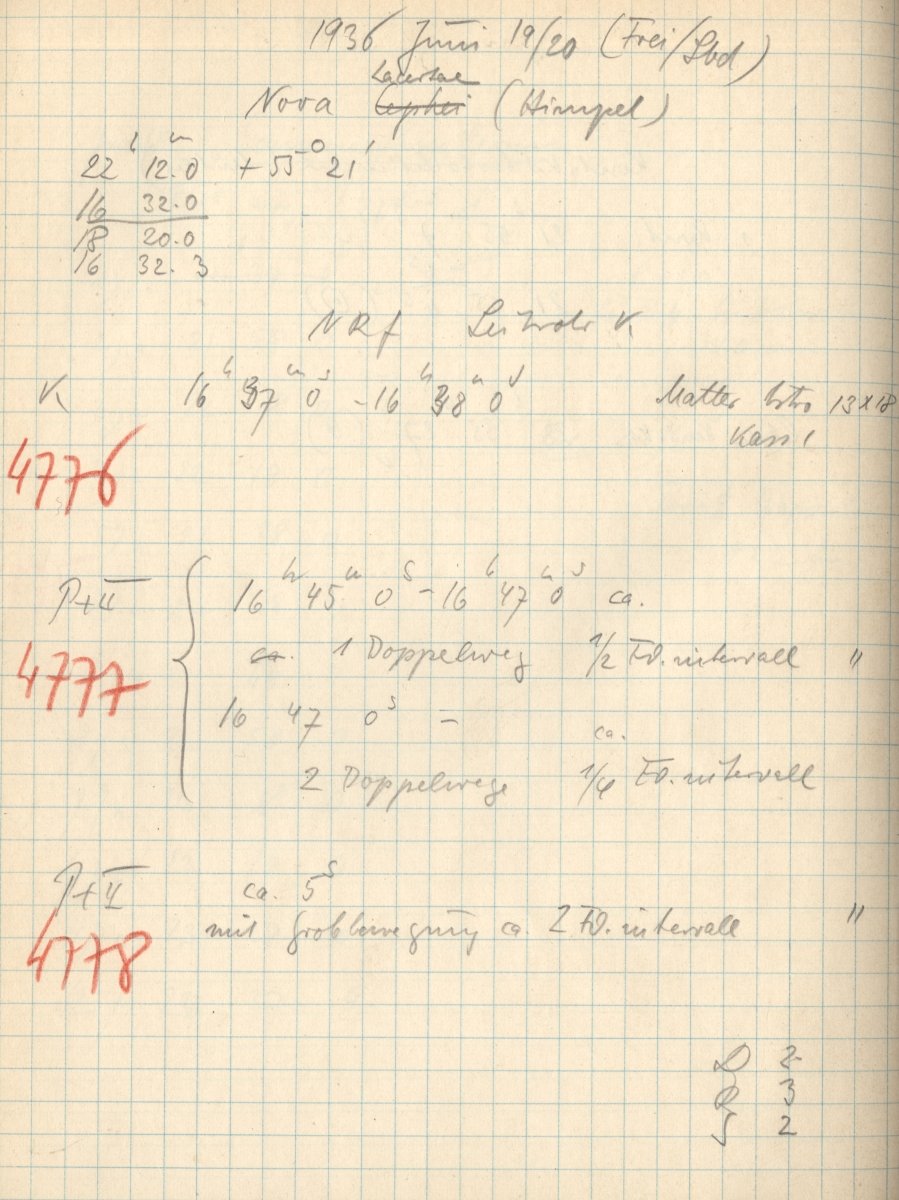 1936 Juni 19/20 (Frei/Sbd)
Lacertae
Nova Cephei (Himpel)
22h 12m.0 +55° 21'
16 32.0
18 20.0
16 32.3
NRf Leitrohr K
K 16h 37m 0s - 16h 38m 0s Matter 13x18
Kass 1
4776
P+II 16h 45m 0s - 16h 47m 0s ca.
4777 ca. 1 Doppelweg 1/2 Fd. intervall "
16 47 0s -
ca.
2 Doppelwege 1/4 Fd. intervall
P+II ca. 5s
mit Grobbewegung ca. 2 Fd. intervall "
4778
D 2
R 3
S 2